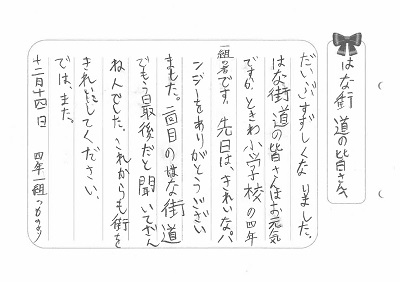 はな街道の皆さんへ
だいぶすずしくなりました。
はな街道の皆さんはお元気
ですか。ときわ小学校の四年
一組です。先日は、きれいなパ
ンジーをありがとうござい
ました。
のはな街道
でもう最後だと聞いてざん
ねんでした。これからも街を
きれいにしてください。
では、また。
十二月十四日 四年一組